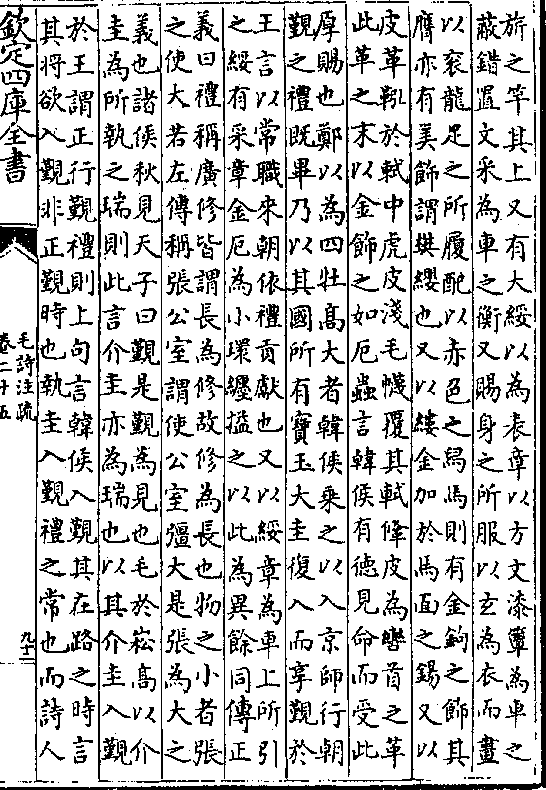 旂之竿其上又有大綏以為表章以方文漆簟為車之
蔽錯置文采為車之衡又賜身之所服以玄為衣而畫
以衮龍足之所履配以赤色之舄馬則有金鉤之飾其
膺亦有美飾謂樊纓也又以鏤金加於馬面之鍚又以
皮革鞃於軾中虎皮淺毛幭覆其軾鞗皮為轡首之革
此革之末以金飾之如厄蟲言韓侯有德見命而受此
厚賜也鄭以為四牡髙大者韓侯乘之以入京師行朝
覲之禮既畢乃以其國所有寶玉大圭復入而享覲於
王言以常職來朝依禮貢獻也又以綏章為車上所引
之綏有采章金厄為小環纒搤之以此為異餘同傳正
義曰禮稱廣修皆謂長為修故修為長也物之小者張
之使大若左傳稱張公室謂使公室彊大是張為大之
義也諸侯秋見天子曰覲是覲為見也毛於崧髙以介
圭為所執之瑞則此言介圭亦為瑞也以其介圭入覲
於王謂正行覲禮則上句言韓侯入覲其在路之時言
其將欲入覲非正覲時也執圭入覲禮之常也而詩人
欽定四庫全書
毛詩注疏
卷二十五
九十二